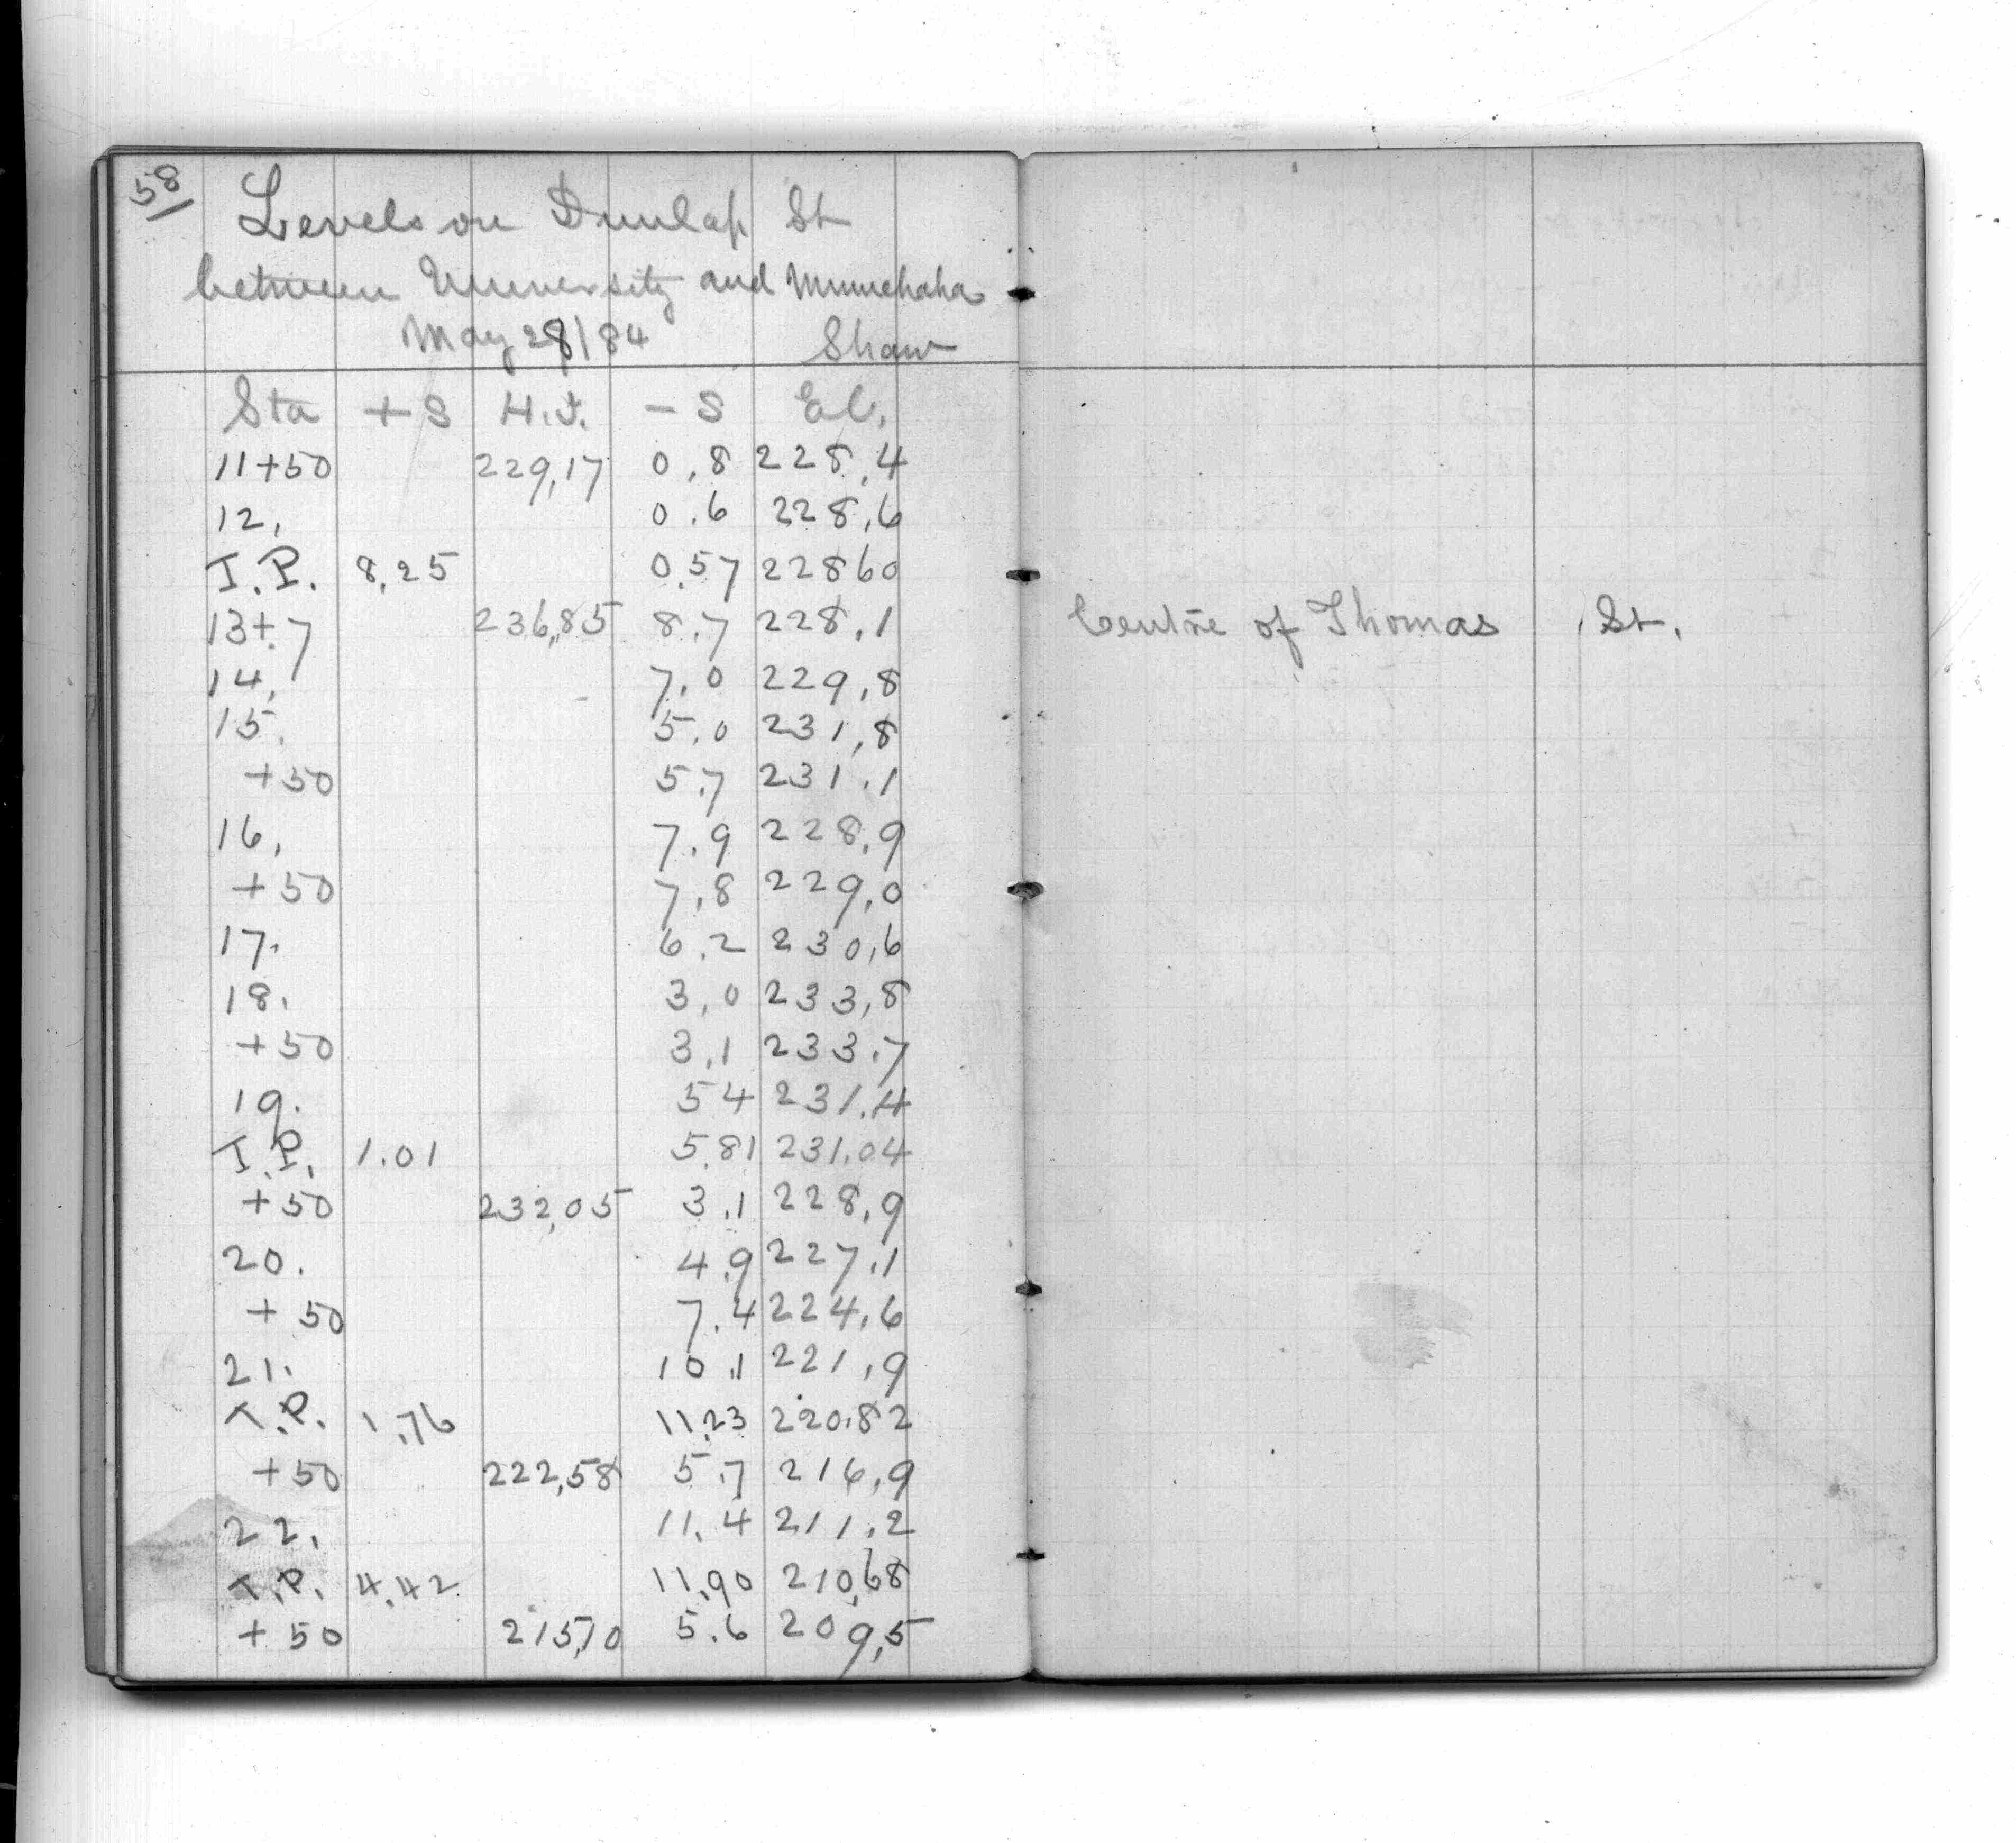 58
Levels on Dunlap St
between University and Minnehaha
May 28/84 Shaw
Sta +S H.I. -S El.
11+50 229,17 0,8 228,4
12, 0.6 228,6
T.P. 8,25 0,57 22860
13+.7 236,85 8,7 228,1 Centre of Thomas St.
14, 7,0 229,8
15. 5,0 231,8
+50 5,7 231,1
16, 7,9 228,9
+50 7,8 229,0
17. 6,2 230,6
18. 3,0 233,8
+50 3,1 233,7
19. 54 231.4
T.P. 1.01 5,81 231.04
+50 232,05 3,1 228,9
20. 4,9 227,1
+50 7,4 224,6
21. 10,1 221,9
T.P. 1,76 11,23 220.82
+50 222,58 5,7 216,9
22, 11,4 211,2
T.P. 4,42 11,90 210,68
+50 215,10 5.6 209,5